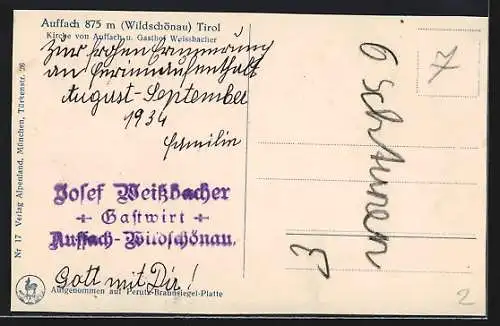 Auffach 875 m (Wildschönau) Tirol
Kirche von Auffach u. Gasthof Weissbacher
Zur frohen Erinnerung
an Ferienaufenthalt
August-September
1934
Familie
Josef Weißbacher
Gastwirt
Auffach-Wildschönau.
Gott mit Dir!
Aufgenommen auf Perutz-Braunsiegel-Platte
Nr 17 Verlag Alpenland, München, Türkenstr. 26
2